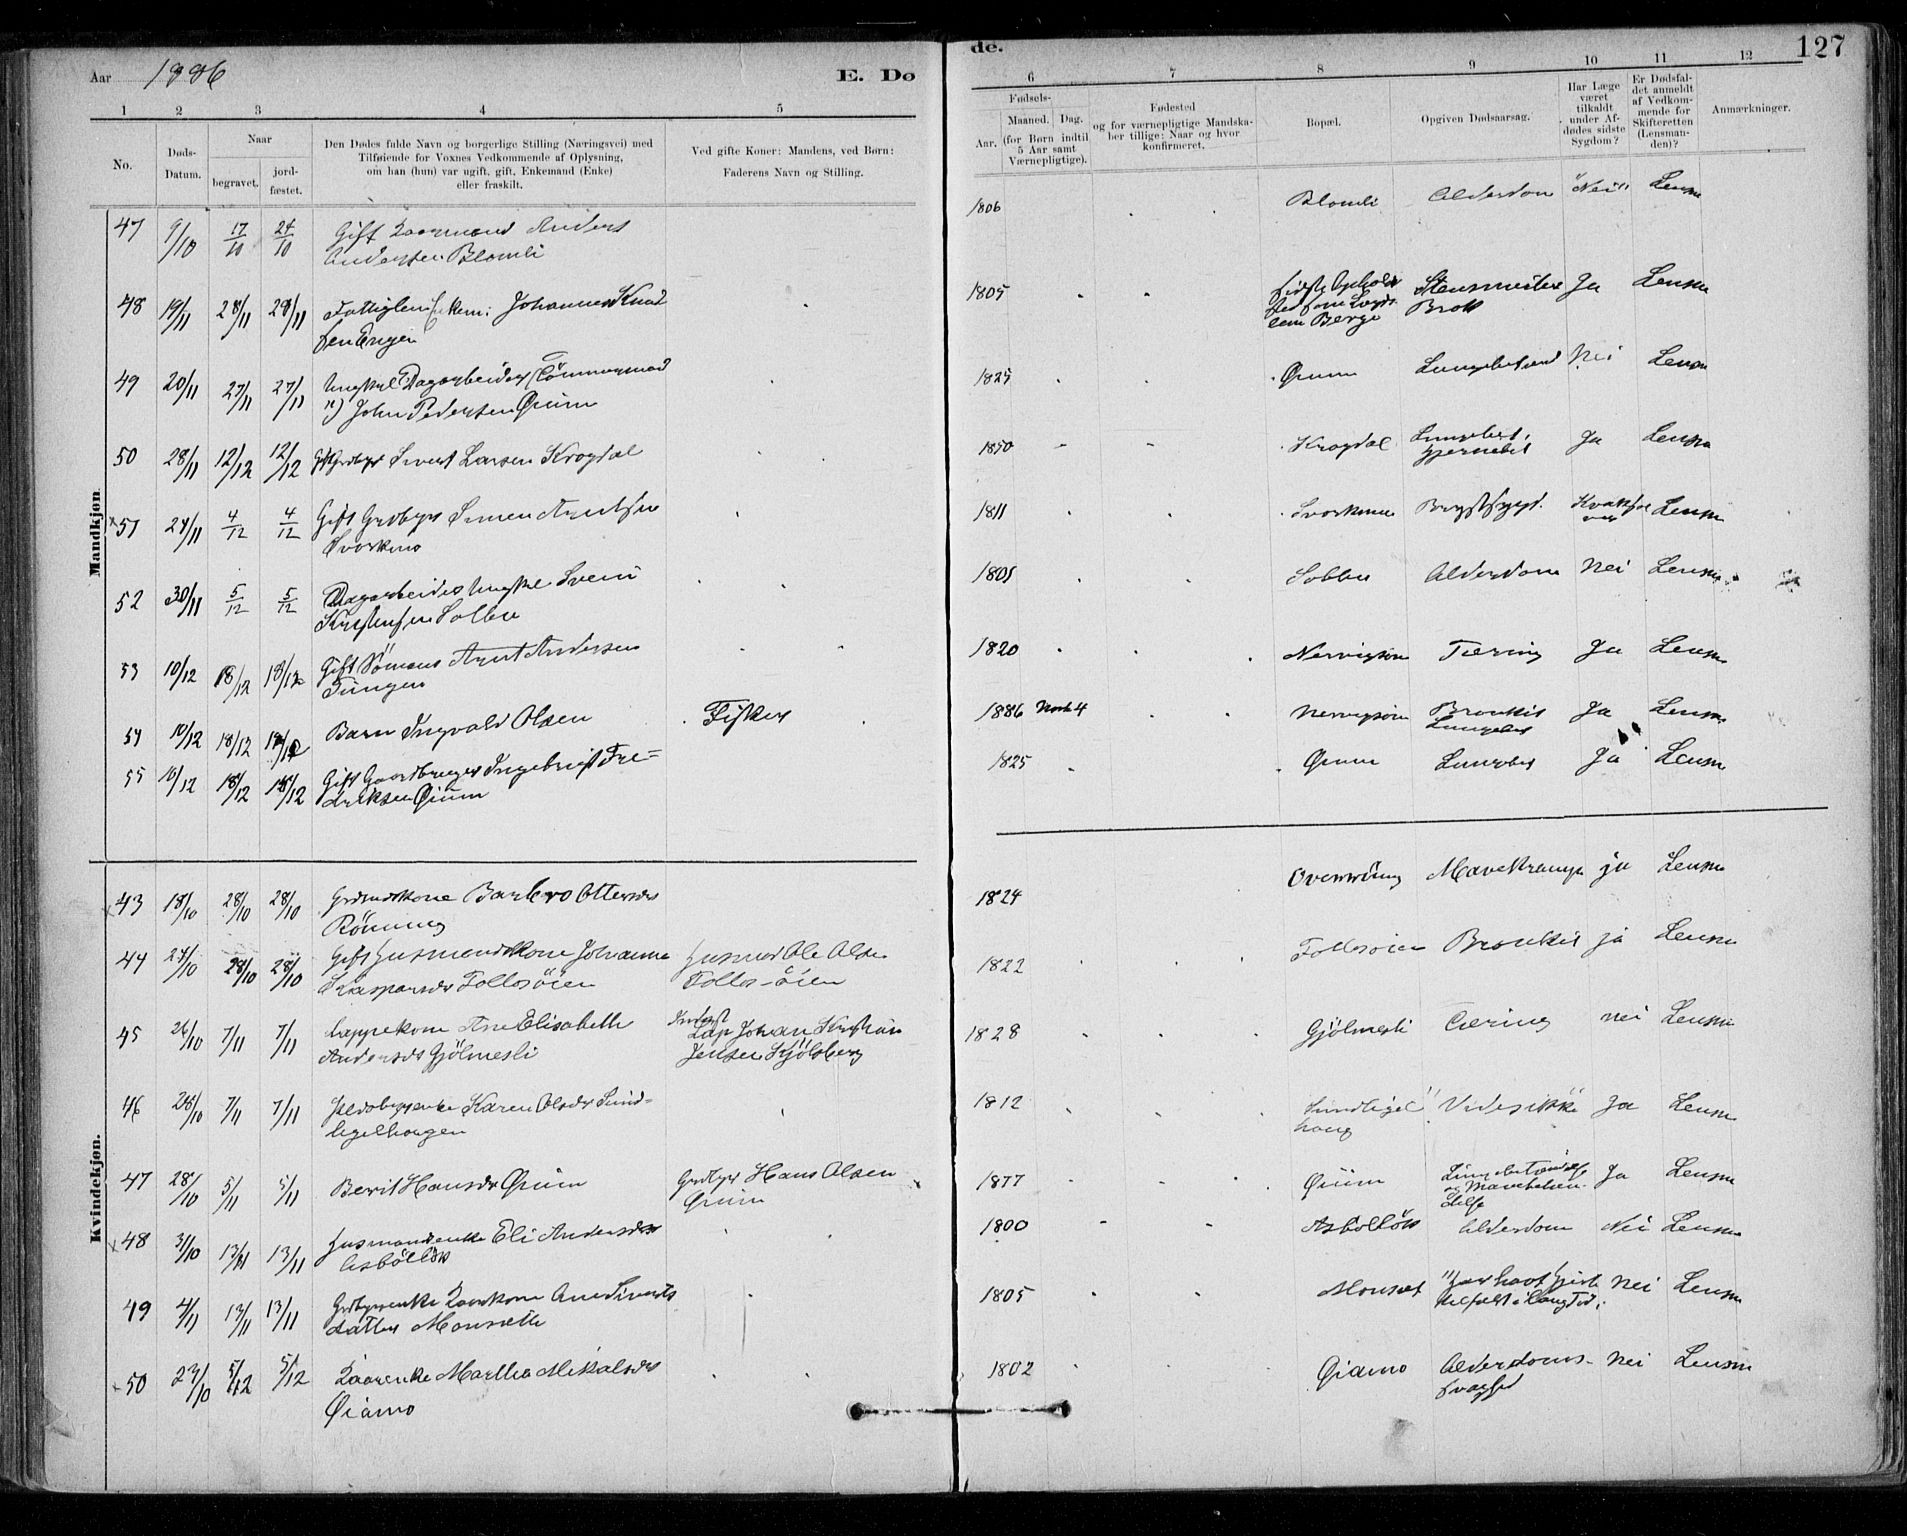 Aar 1886 E. Dø
de. 127
1 2 3 4 5
6 7 8 9 10 11 12
No.
Døds-
Datum.
Naar
begravet.
jord-
fæstet.
Den Dødes fulde Navn og borgerlige Stilling (Næringsvei) med
Tilføiende for Voxnes Vedkommende af Oplysning,
om han (hun) var ugift, gift, Enkemand (Enke)
eller fraskilt.
Ved gifte Koner: Mandens, ved Børn:
Faderens Navn og Stilling.
Fødsels-
Aar.
Maaned. Dag.
(for Børn indtil
5 Aar samt
Værnepligtige).
Fødested
og for værnepligtige Mandska-
ber tillige: Naar og hvor
konfirmeret.
Bopæl.
Opgiven Dødsaarsag.
Har Læge
været
tilkaldt
under Af-
dødes sidste
Sygdom?
Er Dødsfal-
det anmeldt
af Vedkom-
mende for
Skifteretten
(Lensman-
den)?
Anmærkninger.
Mandkjøn.
47 9/10 17/10 24/10 Gift Kaarmand Anders 1806 Blomli Alderdom "Nei" Lensm
Andersen Blomli
48 19/11 28/11 28/11 Fattiglem Enkem: Johannes Knud 1805 Ja Lensm
sen Engen Berge Brok
49 20/11 27/11 27/11 Ungkarl Dagarbeider (Tömmermand 1825 Øium Nei Lensm
") John Pedersen Øium
50 28/11 12/12 12/12 Gift Grdbgr Sivert Larsen Krogdal 1850 Krogdal Lungebet. Ja Lensm
Hjernebet
51 24/11 4/12 4/12 Gift Grdbgr Simen Arntsen 1811 Svorkmo Brystsygd. Lensm
Svorkmo
52 30/11 5/12 5/12 Dagarbeider Ungkarl Svend Solbu Alderdom Nei Lensm
Kristensen Solbu
53 10/12 18/12 18/12 Gift Sömand Arnt Andersen 1820 Tæring Ja Lensm
Tungen
54 10/12 18/12 Barn Ingvald Olsen Fisker 1886 4 Bronkit Ja Lensm
Lungebet
55 10/12 18/12 18/12 Gift Gaardbruger Ingebrigt Fre= 1825 Øium Lungebet Ja Lensm
driksen Øium
Kvindekjøn.
43 18/10 28/10 28/10 Grdmdskone Barbro Ottersdr 1824 Mavekrampe ja Lensm
Rönning
44 24/10 28/10 28/10 Gift Husmandskone Johanna Husmd Ole Olsen 1822 Follosöien Bronkit ja Lensm
Kaspersdr Follosöien Follo-söien
45 26/10 7/11 7/11 Lappekone Ane Elisabeth Lap Johan Kristian 1828 Gjölmesli Tæring nei Lensm
Andersdr Gjölmesli Jensen Kjölsberg
46 28/10 7/11 7/11 Karen Olsdr Sund= 1812 Sundligel "Vides ikke" Ja Lensm
ligelhaugen haug
47 28/10 5/11 5/11 Berit Hansdr Øium Grdbgr Hans Olsen 1877 Øium Lungebetændelse Ja Lensm
Øium og Mavebetæn-
delse
48 31/10 13/11 13/11 Husmandsenke Eli Andersdr 1800 Asböllök Alderdom Nei Lensm
Asböllök
49 4/11 13/11 13/11 Grdbgrenke Kaarkone Ane Siverts 1805 Monset "Har havt Gigt Nei Lensm
datter Monseth i lang Tid.
50 23/10 5/12 5/12 Kaarenke Martha Mikalsdr 1802 Øiamo Alderdoms- Nei Lensm
Øiamo svaghed